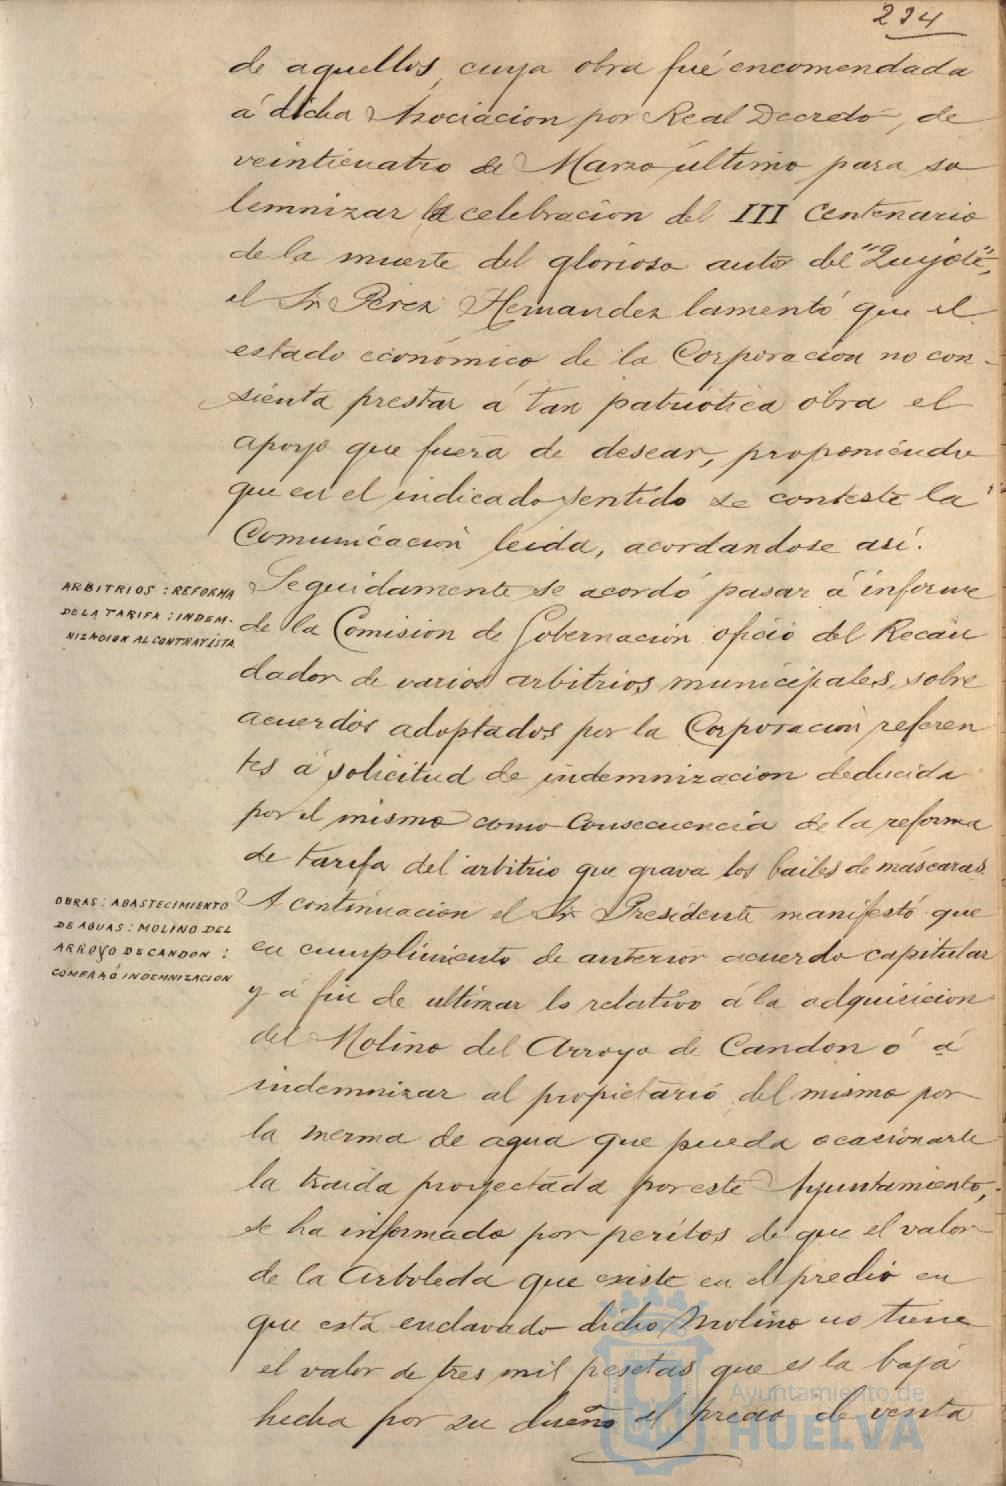 234
de aquellos, cuya obra fué encomendada
á dicha Asociacion por Real Decreto, de
veinticuatro de Marzo último para so
lemnizar la celebracion del III Centenario
de la muerte del glorioso autor del "Quijote",
el Sr. Perez Hernandez lamentó que el
estado económico de la Corporacion no con-
sienta prestar á tan patriótica obra el
apoyo que fuera de desear, proponiendo
que en el indicado sentido se conteste la
Comunicación leida, acordandose así.
ARBITRIOS: REFORMA
DE LA TARIFA: INDEM-
NIZACION AL CONTRATISTA
Seguidamente se acordó pasar á informe
de la Comision de Gobernación oficio del Recau
dador de varios arbitrios municipales, sobre
acuerdos adoptados por la Corporación referen
tes á solicitud de indemnizacion deducida
por el mismo como consecuencia de la reforma
de tarifa del arbitrio que grava los bailes de máscaras.
OBRAS: ABASTECIMIENTO
DE AGUAS: MOLINO DEL
ARROYO DE CANDON:
COMPRA Ó INDEMNIZACION
A continuacion el Sr. Presidente manifestó que
en cumplimiento de anterior acuerdo capitular
y á fin de ultimar lo relativo á la adquisicion
del Molino del Arroyo de Candon ó á
indemnizar al propietario del mismo por
la merma de agua que pueda ocasionarle
la traida proyectada por este Ayuntamiento,
se ha informado por peritos de que el valor
de la Arboleda que existe en el predio en
que está enclavado dicho Molino no tiene
el valor de tres mil pesetas que es la baja
hecha por su dueño al precio de venta
Ayuntamiento de
HUELVA